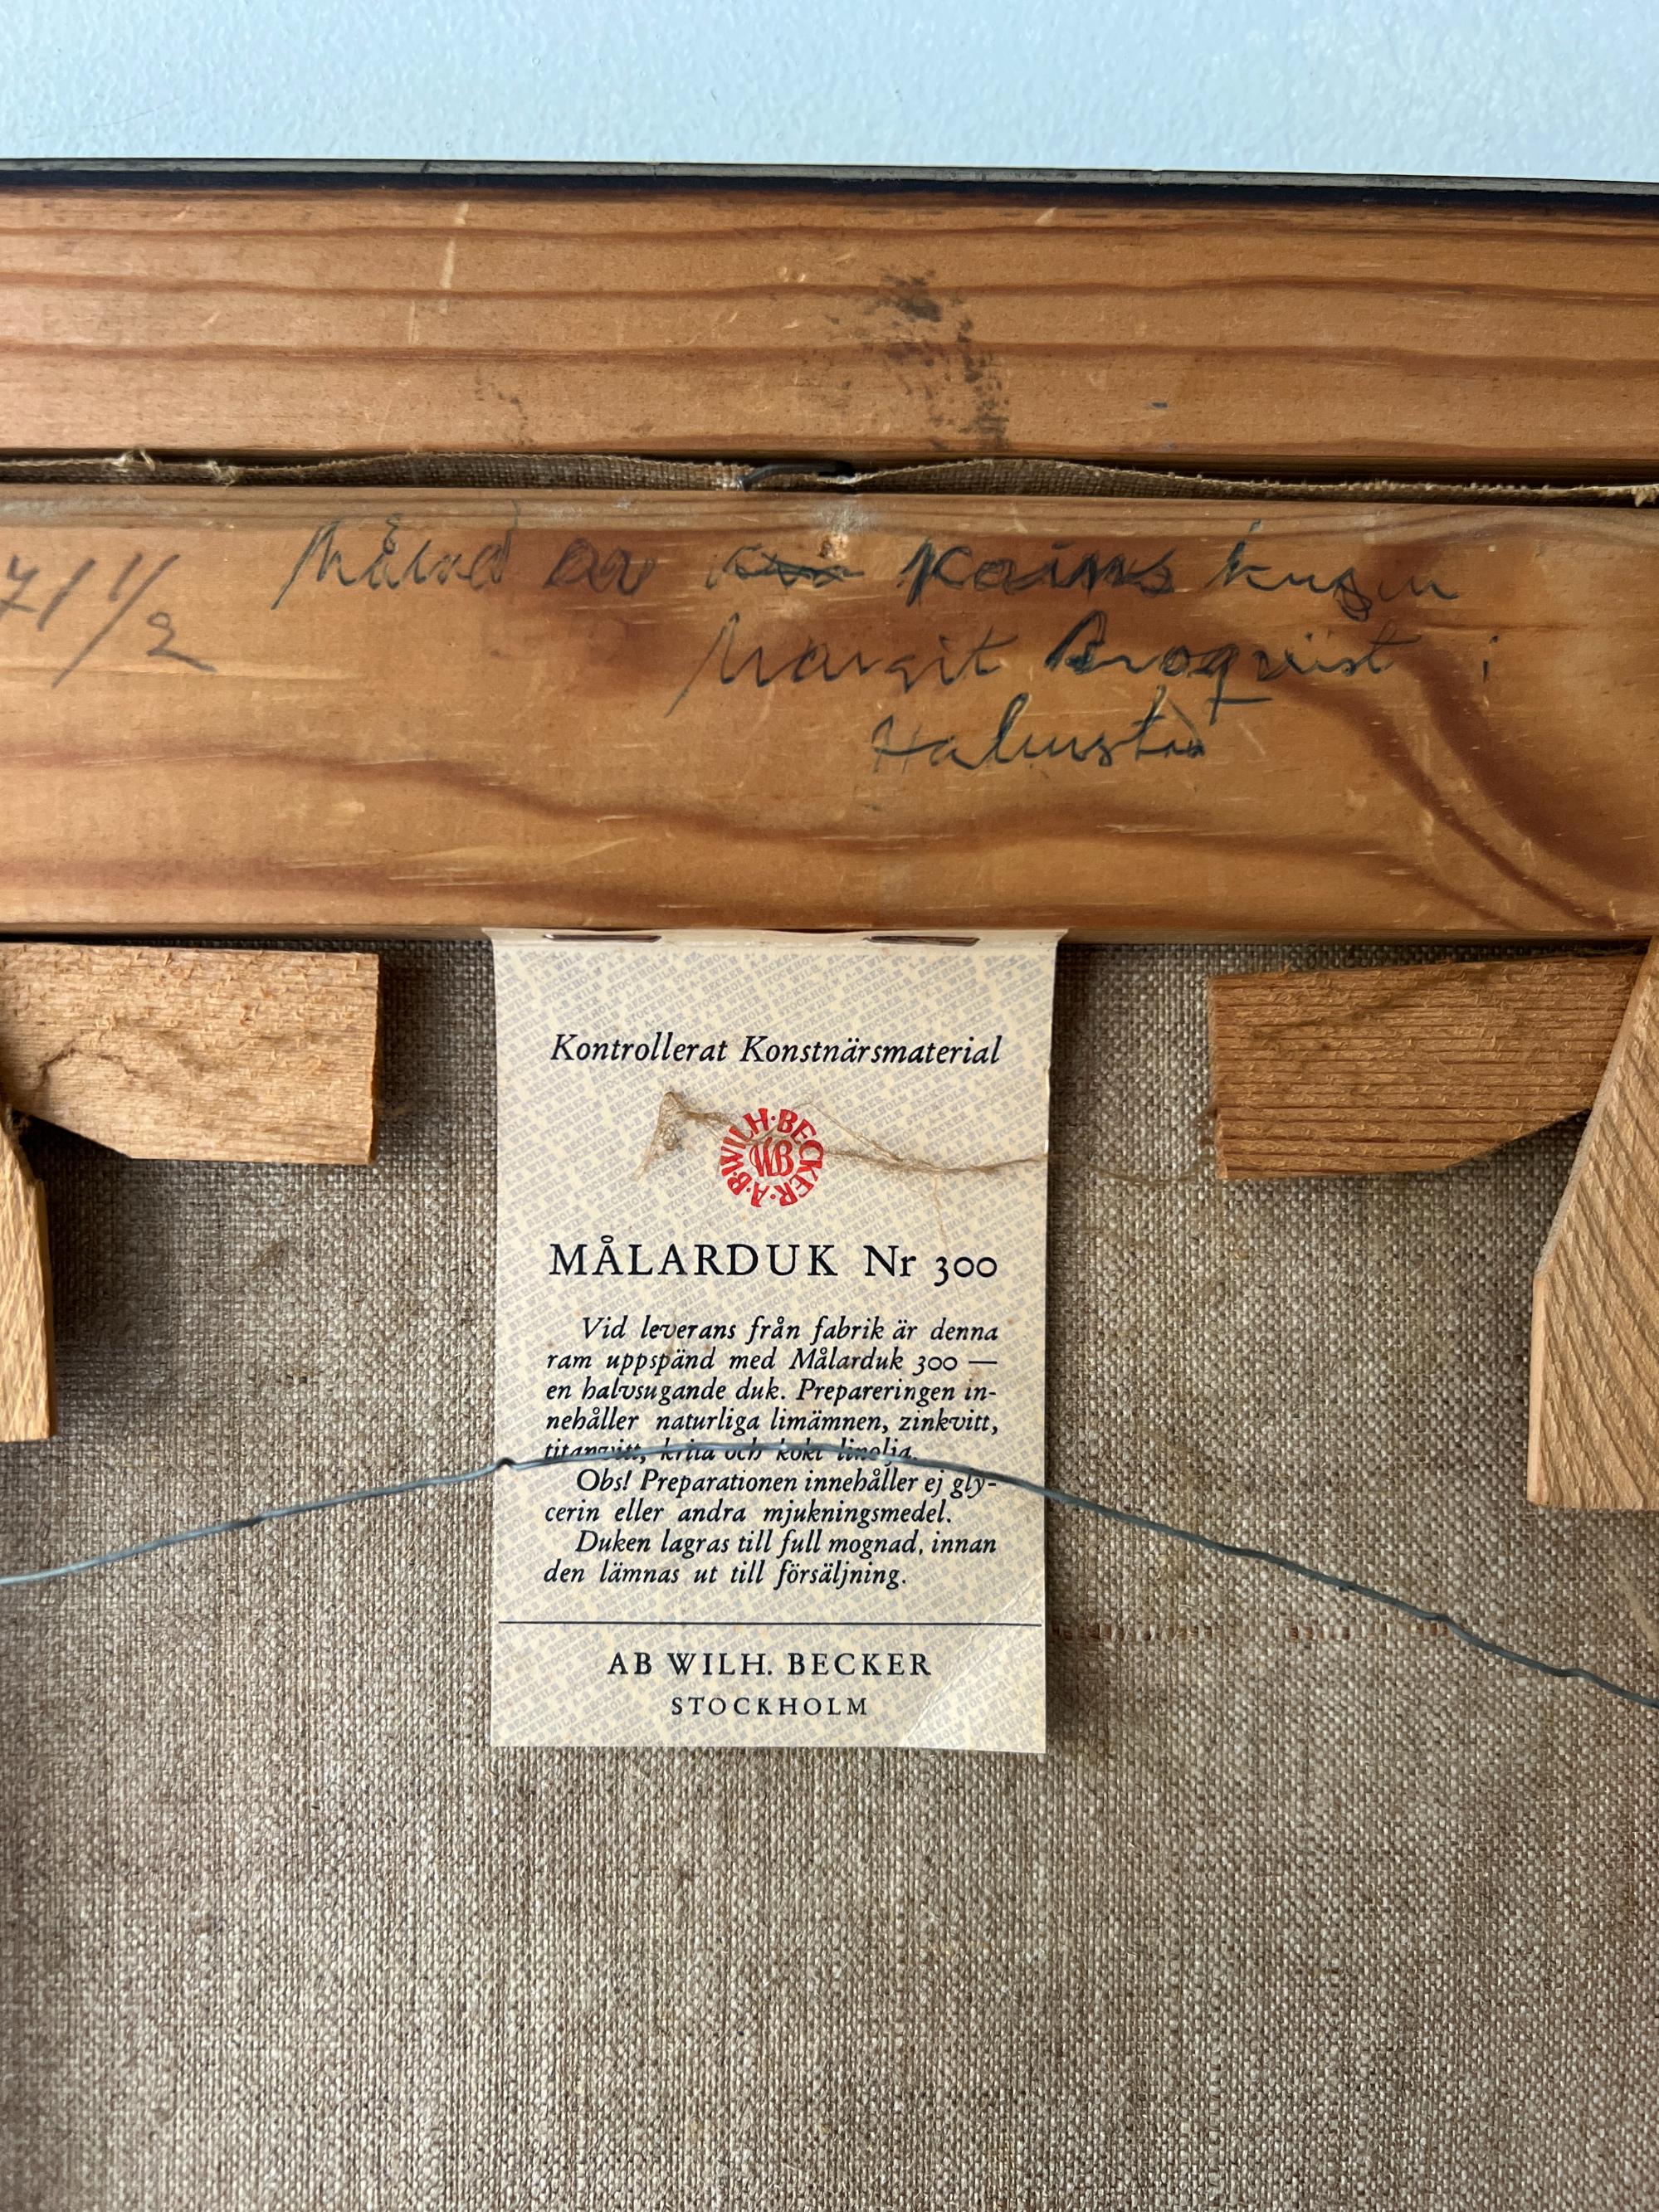 71 1/2
Målad av Kains kusin
Margit Broqvist i
Halmstad
Kontrollerat Konstnärsmaterial
A·B·WILH·BECKER
WB
MÅLARDUK Nr 300
Vid leverans från fabrik är denna
ram uppspänd med Målarduk 300 —
en halvsugande duk. Prepareringen in-
nehåller naturliga limämnen, zinkvitt,
titanvitt, krita och kokt linolja.
Obs! Preparationen innehåller ej gly-
cerin eller andra mjukningsmedel.
Duken lagras till full mognad, innan
den lämnas ut till försäljning.
AB WILH. BECKER
STOCKHOLM